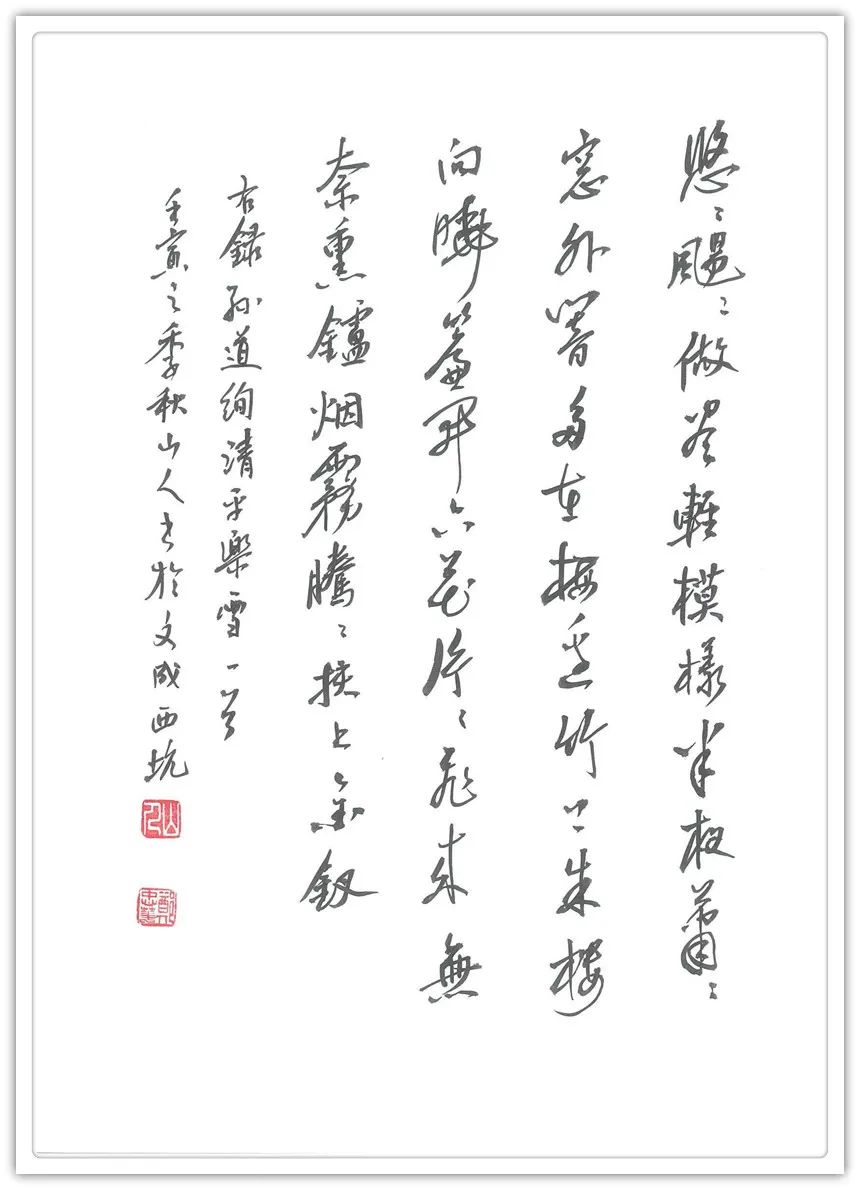 悠〻颺〻做盡輕模樣半夜蕭〻
窓外響多在梅邊竹上朱樓
向曉簾開六花片〻飛來無
奈熏鑪烟霧騰〻扶上金釵
右録孫道絢清平樂雪一首
壬寅之季秋山人書於文成西坑
山人